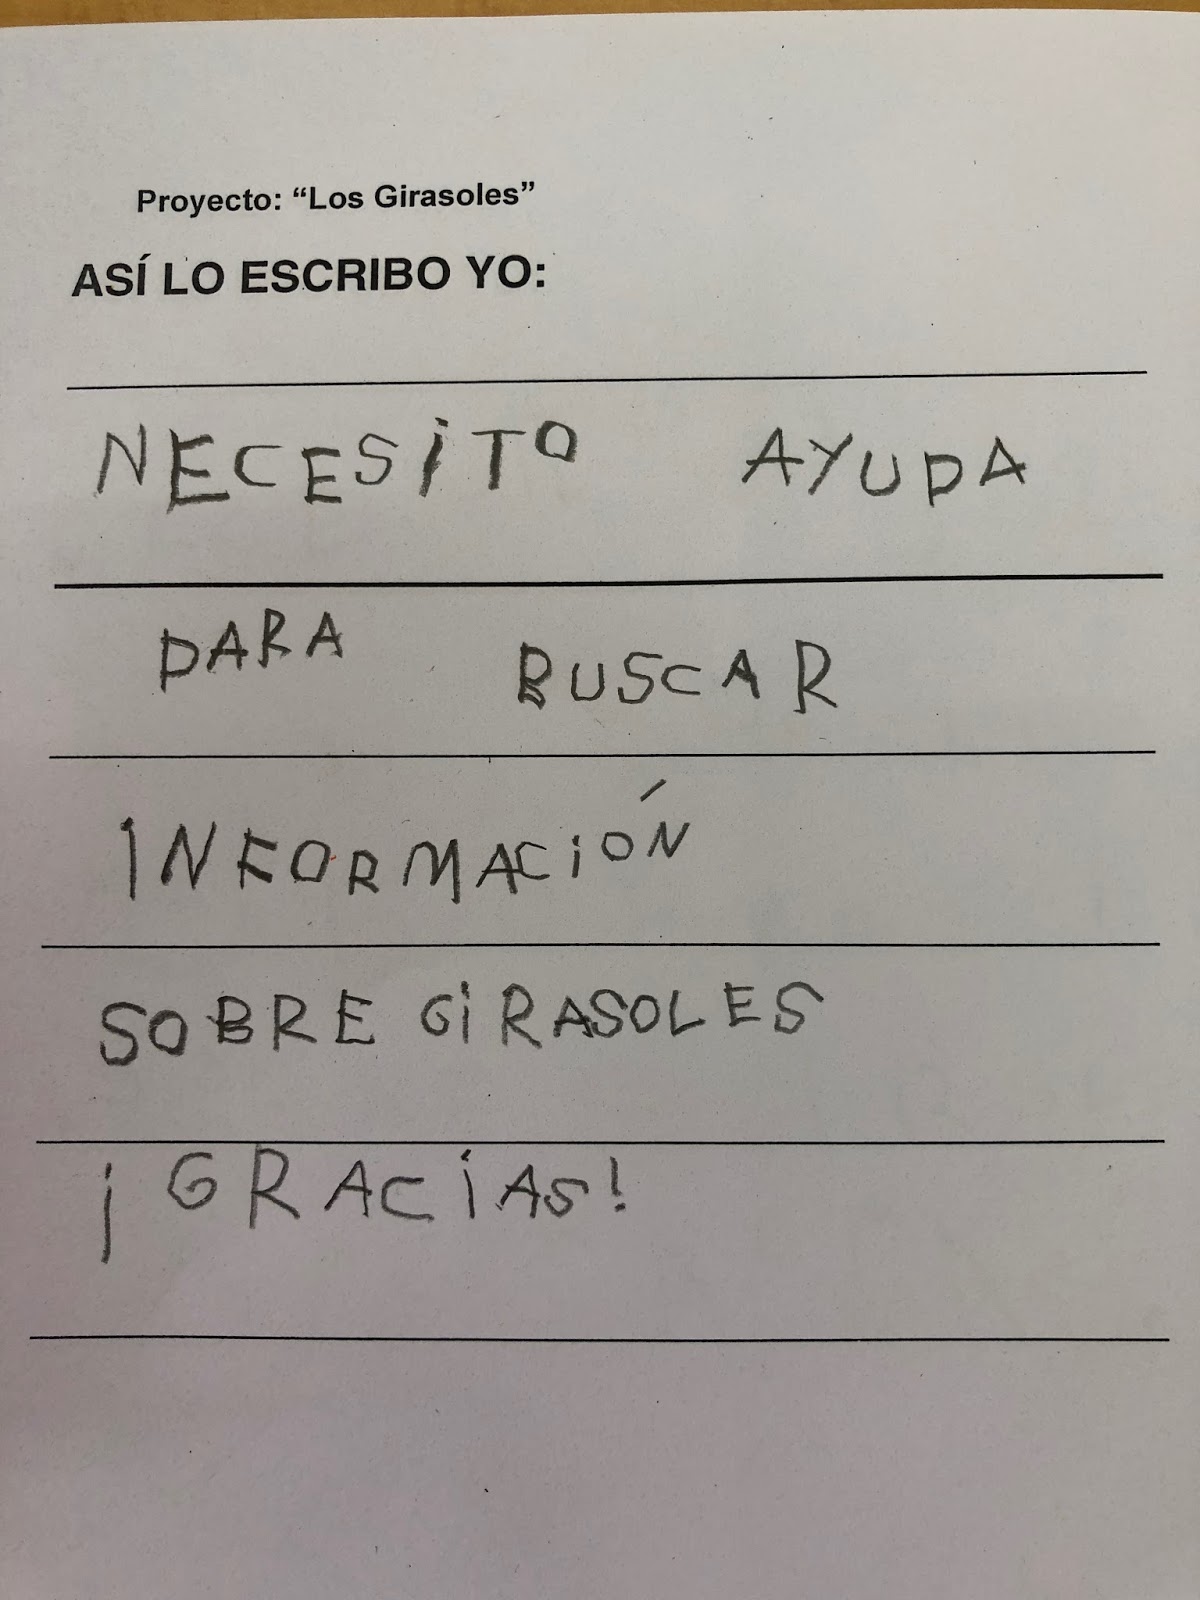 Proyecto: “Los Girasoles”
ASÍ LO ESCRIBO YO:
NECESiTO AYUDA
PARA BUSCAR
INFORMACiÓN
SOBRE GiRASOLES
¡GRACiAS!